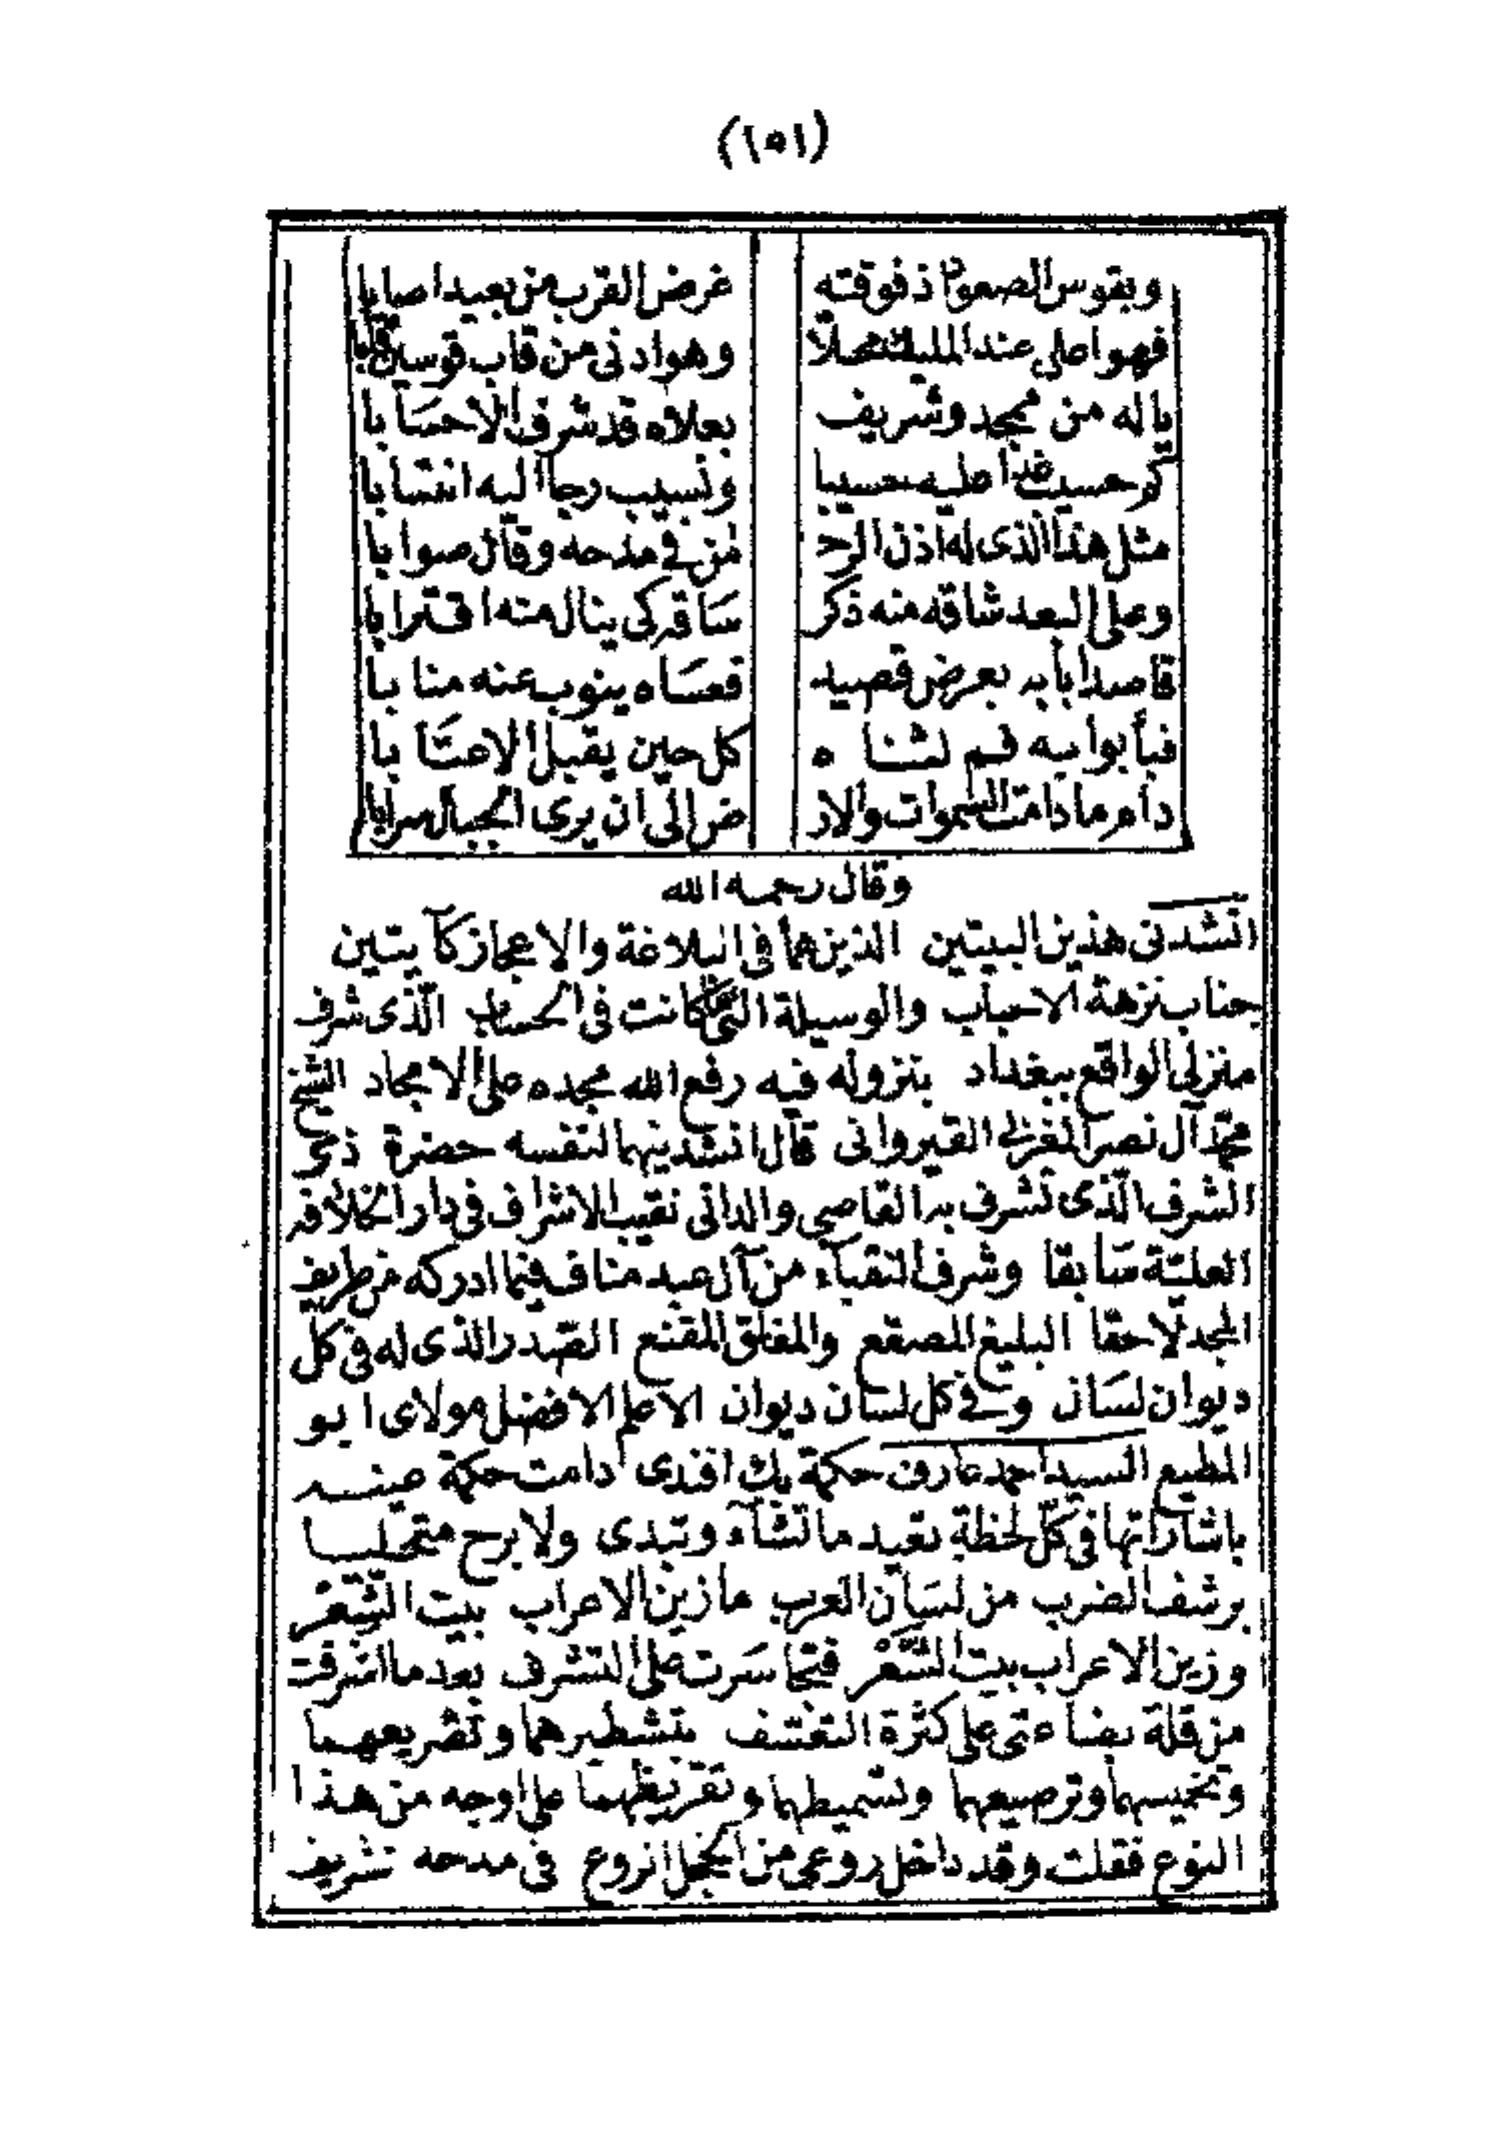 (١٥١)
وبقوس الصعود اذ فوقته غرض القرب من بعيد اصابا
فهو اعلى عند المليك محلّا وهو ادنى من قاب قوسين قابا
ياله من ممجد وشريف بعلاه قد شرف الاحسابا
كم حسيب غدا عليه حسيبا ونسيب رجا اليه انتسابا
مثل هذا الذى له اذن الرحـ ـمن فى مدحه وقال صوابا
وعلى البعد شاقه منه ذكر ساقه كى ينال منه اقترابا
قاصدا بابه بعرض قصيد فعساه ينوب عنه منابا
فبأبوابيه فم لثناه كل حين يقبل الاعتابا
دام مادامت السموات والار ض الى ان يرى الجبال سرابا
وقال رحمه الله
انشدنى هذين البيتين الذين هما فى البلاغة والاعجاز كآيتين
جناب نزهة الاحباب والوسيلة التى كانت فى الحساب الّذى شرف
منزلى الواقع ببغداد بنزوله فيه رفع الله مجده على الامجاد الشيخ
محمّد آل نصر المغربى القيروانى قال انشدنيهما لنفسه حضرة ذى
الشرف الّذى تشرف به القاصى والدانى نقيب الاشراف فى دار الخلافه
العليّة سابقا وشرف النقباء من آل عبد مناف فيما ادركه من طريف
المجد لاحقا البليغ المصقع والمفلق المقنع الصّدر الذى له فى كل
ديوان لسان وفى كل لسان ديوان الاعلم الافضل مولاى ابو
المطيع السيد احمد عارف حكمة بك افندى دامت حكمة عينه
باشاراتها فى كلّ لحظة تعيد ما تشآء وتبدى ولا برح متحليا
برشف الضرب من لسان العرب ما زين الاعراب بيت الشِّعْر
وزين الاعراب بيت الشَّعْر فتجاسرت على التشرف بعدما اشرفت
من قلة بضاعتى على كثرة التعسّف بتشطيرهما وتضريعهما
وتخميسهما وترصيعهما وتسميطهما وتقريظهما على اوجه من هذا
النوع فقلت وقد داخل روعى من الخجل انروع فى مدحه تشريف